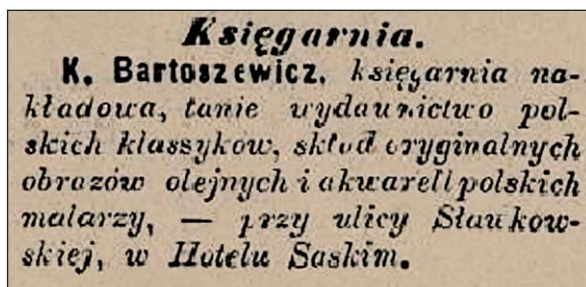 Księgarnia.
K. Bartoszewicz, księgarnia na-
kładowa, tanie wydawnictwo pol-
skich klassyków, skład oryginalnych
obrazów olejnych i akwarell polskich
malarzy, — przy ulicy Sławkow-
skiej, w Hotelu Saskim.